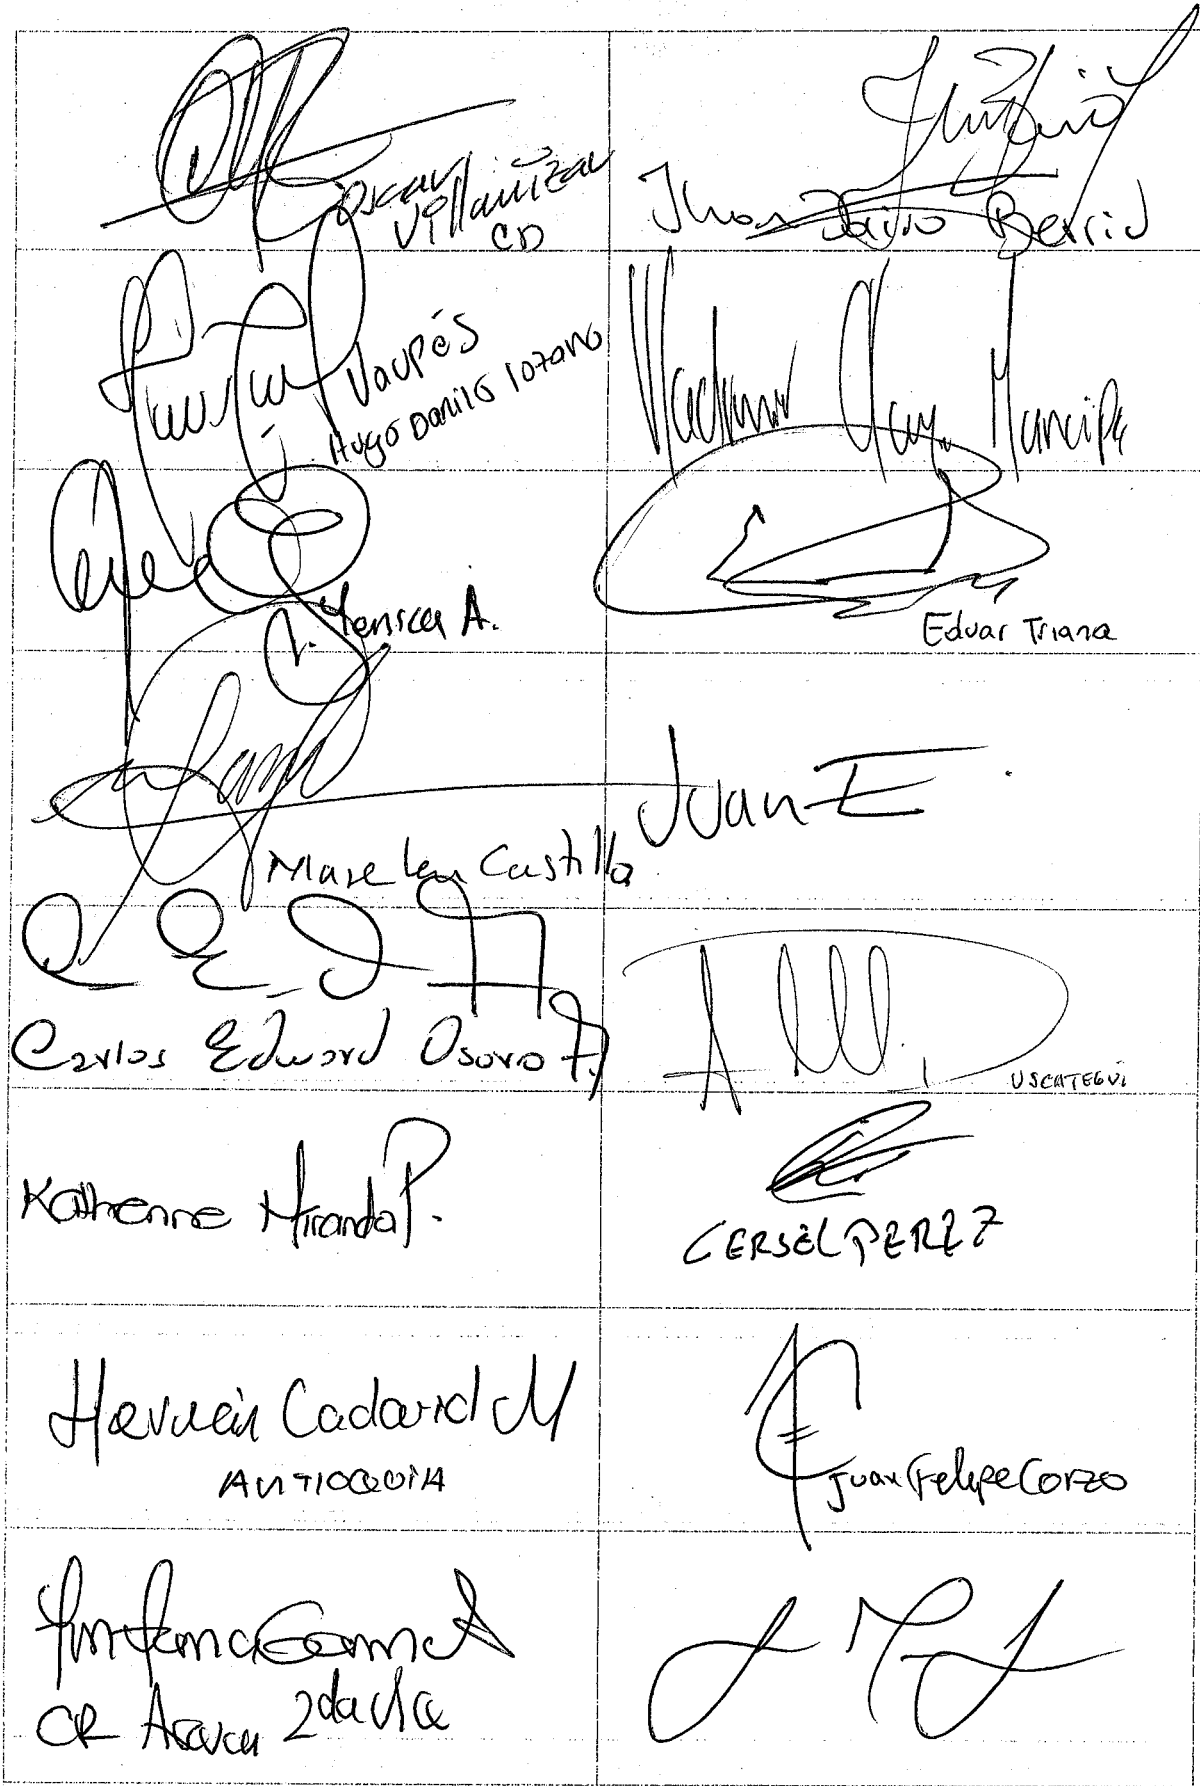 Oscar
Villamizar
CD
Jhon Jairo Berrio
Vaupés
Hugo Danilo lozano
Vladimir Olaya Mancipe
Yenica A.
Eduar Triana
Juan E
Marelen Castillo
Carlos Edward Osorio A
USCATEGUI
Katherine Miranda P.
CERSEL PEREZ
Hernán Cadavid M
ANTIOQUIA
Juan Felipe Corzo
CR Arauca 2da